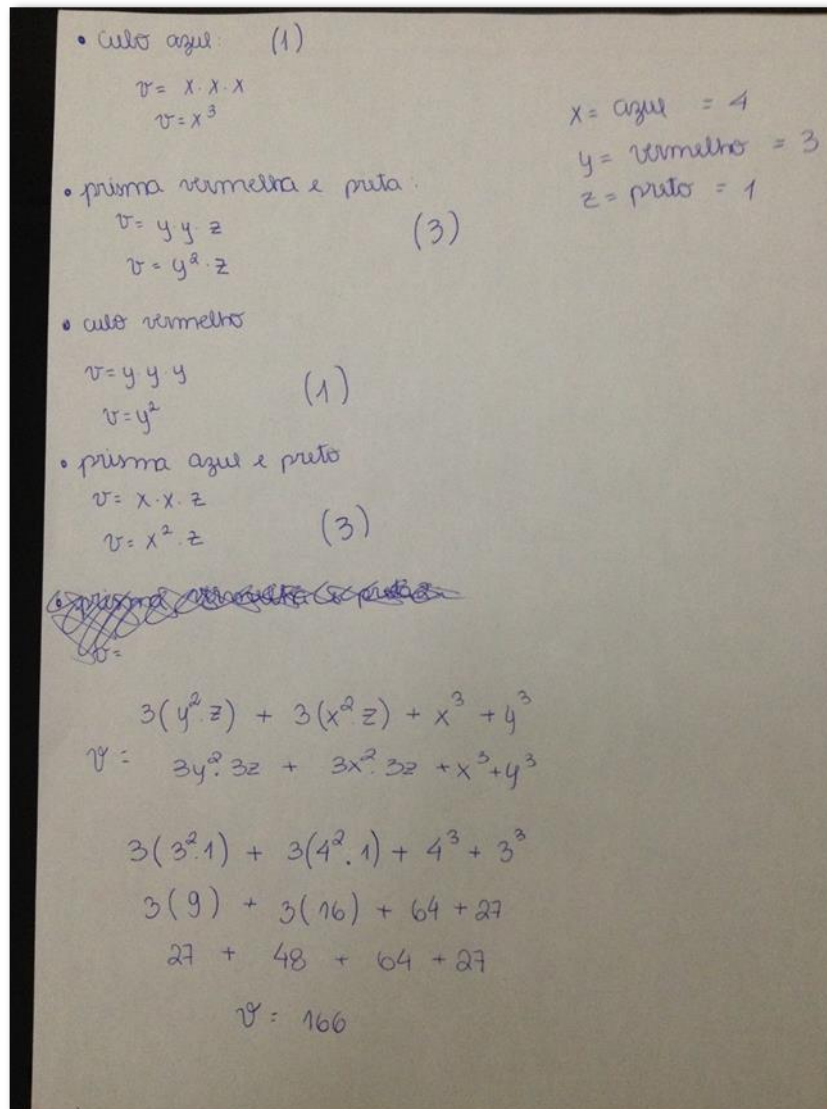 • cubo azul: (1)
v = x · x · x
v = x³
x = azul = 4
y = vermelho = 3
z = preto = 1
• prisma vermelha e preta:
v = y · y · z (3)
v = y² · z
• cubo vermelho
v = y · y · y (1)
v = y²
• prisma azul e preto
v = x · x · z (3)
v = x² · z
v =
3(y² · z) + 3(x² · z) + x³ + y³
v = 3y² · 3z + 3x² · 3z + x³ + y³
3(3² · 1) + 3(4² · 1) + 4³ + 3³
3(9) + 3(16) + 64 + 27
27 + 48 + 64 + 27
v = 166